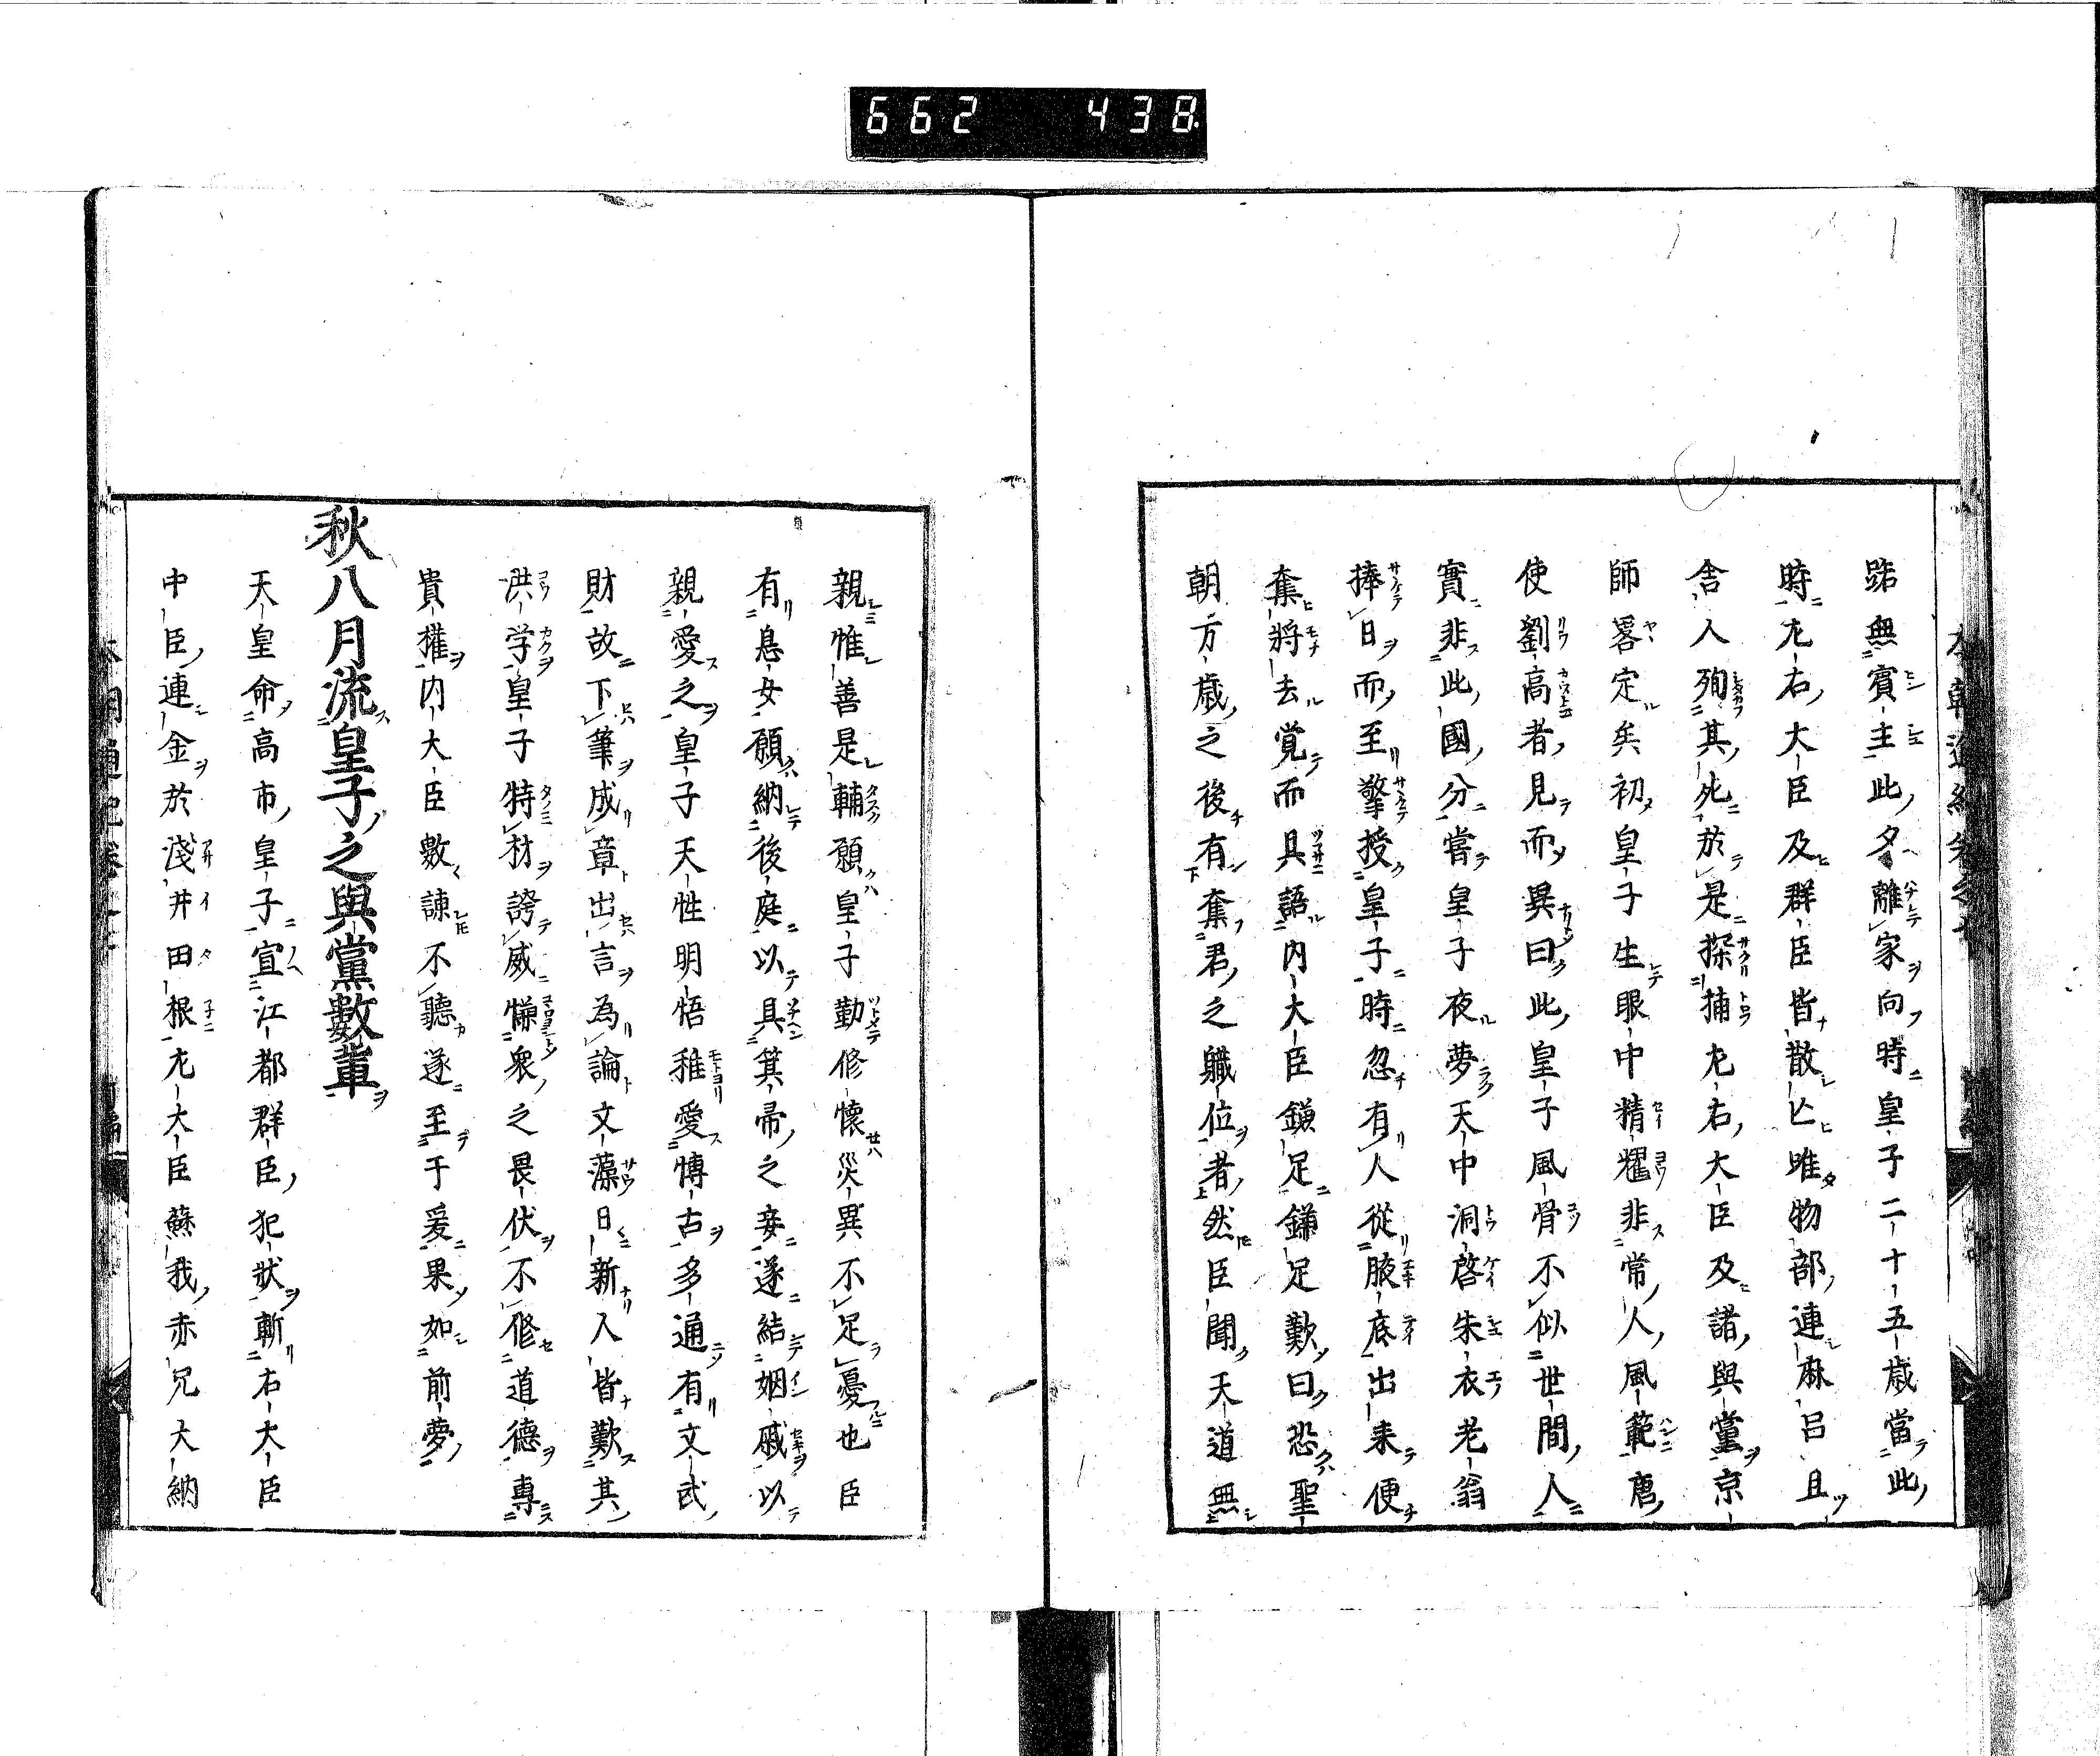 662 438
路無賓主此夕離家向時皇子二十五歳當此
時左右大臣及群臣皆散亡唯物部連麻呂且
舎人殉其死於是探捕左右大臣及諸與黨京
師畧定矣初皇子生眼中精耀非常人風範唐
使劉高者見而異曰此皇子風骨不似世間人
實非此國分嘗皇子夜夢天中洞啓朱衣老翁
捧日而至擎授皇子時忽有人從腋底出来便
奪將去覚而具語内大臣鎌足鎌足歎曰恐聖
朝万歳之後有奪君之職位者然臣聞天道無
親惟善是輔願皇子勤修懐災異不足憂也臣
有息女願納後庭以具箕帚之妾遂結姻戚以
親愛之皇子天性明悟稚愛博古多通有文武
財故下筆成章出言為論文藻日新人皆歎其
洪学皇子特材誇威慊衆之畏伏不修道德專
貴權内大臣數諫不聽遂至于爰果如前夢
秋八月流皇子之與黨數輩
天皇命高市皇子宣江都群臣犯状斬右大臣
中臣連金於淺井田根左大臣蘇我赤兄大納